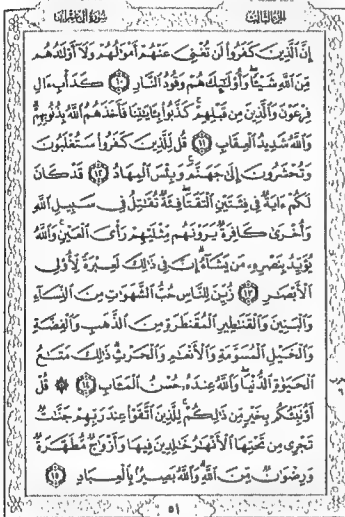 الجزء الثالث سورة آل عمران
إِنَّ ٱلَّذِينَ كَفَرُوا۟ لَن تُغْنِىَ عَنْهُمْ أَمْوَٰلُهُمْ وَلَآ أَوْلَٰدُهُم
مِّنَ ٱللَّهِ شَيْـًٔا ۖ وَأُو۟لَٰٓئِكَ هُمْ وَقُودُ ٱلنَّارِ ١٠ كَدَأْبِ ءَالِ
فِرْعَوْنَ وَٱلَّذِينَ مِن قَبْلِهِمْ ۚ كَذَّبُوا۟ بِـَٔايَٰتِنَا فَأَخَذَهُمُ ٱللَّهُ بِذُنُوبِهِمْ ۗ
وَٱللَّهُ شَدِيدُ ٱلْعِقَابِ ١١ قُل لِّلَّذِينَ كَفَرُوا۟ سَتُغْلَبُونَ
وَتُحْشَرُونَ إِلَىٰ جَهَنَّمَ ۚ وَبِئْسَ ٱلْمِهَادُ ١٢ قَدْ كَانَ
لَكُمْ ءَايَةٌ فِى فِئَتَيْنِ ٱلْتَقَتَا ۖ فِئَةٌ تُقَٰتِلُ فِى سَبِيلِ ٱللَّهِ
وَأُخْرَىٰ كَافِرَةٌ يَرَوْنَهُم مِّثْلَيْهِمْ رَأْىَ ٱلْعَيْنِ ۚ وَٱللَّهُ
يُؤَيِّدُ بِنَصْرِهِۦ مَن يَشَآءُ ۗ إِنَّ فِى ذَٰلِكَ لَعِبْرَةً لِّأُو۟لِى
ٱلْأَبْصَٰرِ ١٣ زُيِّنَ لِلنَّاسِ حُبُّ ٱلشَّهَوَٰتِ مِنَ ٱلنِّسَآءِ
وَٱلْبَنِينَ وَٱلْقَنَٰطِيرِ ٱلْمُقَنطَرَةِ مِنَ ٱلذَّهَبِ وَٱلْفِضَّةِ
وَٱلْخَيْلِ ٱلْمُسَوَّمَةِ وَٱلْأَنْعَٰمِ وَٱلْحَرْثِ ۗ ذَٰلِكَ مَتَٰعُ
ٱلْحَيَوٰةِ ٱلدُّنْيَا ۖ وَٱللَّهُ عِندَهُۥ حُسْنُ ٱلْمَـَٔابِ ١٤ ۞ قُلْ
أَؤُنَبِّئُكُم بِخَيْرٍ مِّن ذَٰلِكُمْ ۚ لِلَّذِينَ ٱتَّقَوْا۟ عِندَ رَبِّهِمْ جَنَّٰتٌ
تَجْرِى مِن تَحْتِهَا ٱلْأَنْهَٰرُ خَٰلِدِينَ فِيهَا وَأَزْوَٰجٌ مُّطَهَّرَةٌ
وَرِضْوَٰنٌ مِّنَ ٱللَّهِ ۗ وَٱللَّهُ بَصِيرٌۢ بِٱلْعِبَادِ ١٥
٥١